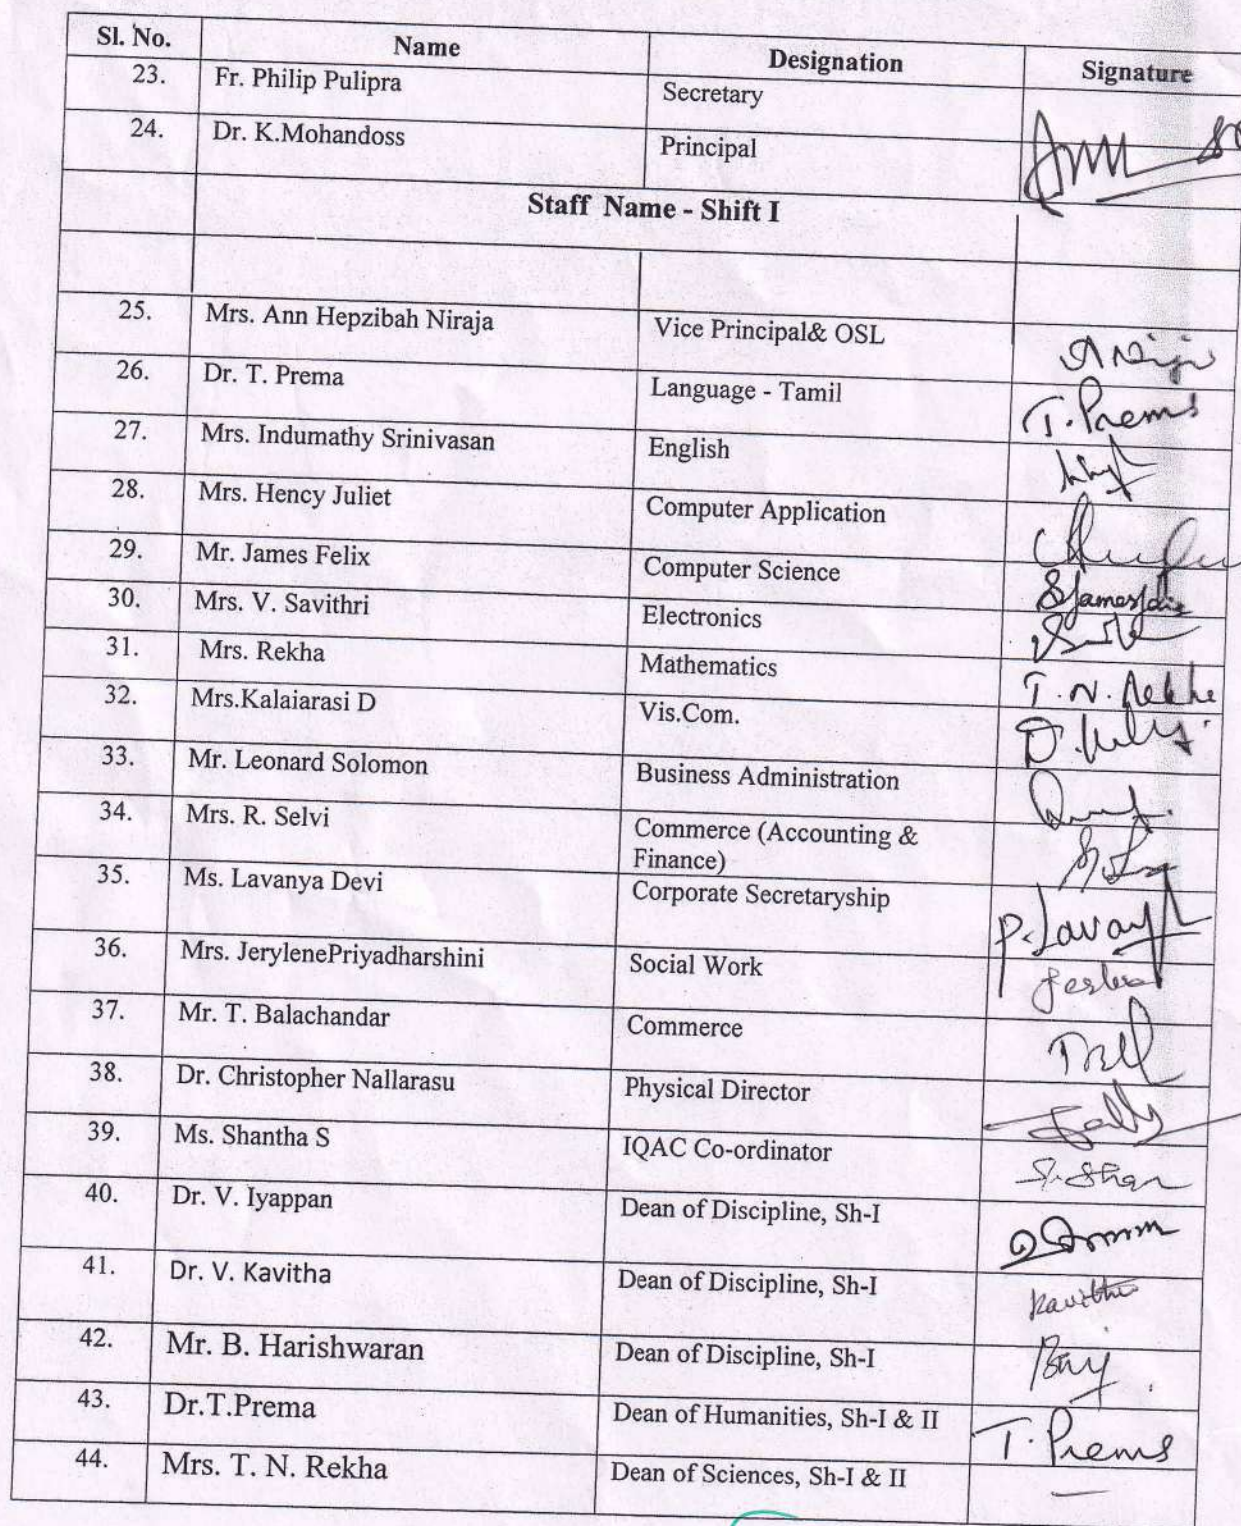 Sl. No. Name Designation Signature
23. Fr. Philip Pulipra Secretary
24. Dr. K.Mohandoss Principal
Staff Name - Shift I
25. Mrs. Ann Hepzibah Niraja Vice Principal& OSL
26. Dr. T. Prema Language - Tamil T. Prema
27. Mrs. Indumathy Srinivasan English
28. Mrs. Hency Juliet Computer Application
29. Mr. James Felix Computer Science
30. Mrs. V. Savithri Electronics
31. Mrs. Rekha Mathematics T. N. Rekha
32. Mrs.Kalaiarasi D Vis.Com.
33. Mr. Leonard Solomon Business Administration
34. Mrs. R. Selvi Commerce (Accounting &
Finance)
35. Ms. Lavanya Devi Corporate Secretaryship
36. Mrs. JerylenePriyadharshini Social Work
37. Mr. T. Balachandar Commerce
38. Dr. Christopher Nallarasu Physical Director
39. Ms. Shantha S IQAC Co-ordinator
40. Dr. V. Iyappan Dean of Discipline, Sh-I
41. Dr. V. Kavitha Dean of Discipline, Sh-I Kavitha
42. Mr. B. Harishwaran Dean of Discipline, Sh-I
43. Dr.T.Prema Dean of Humanities, Sh-I & II T. Prema
44. Mrs. T. N. Rekha Dean of Sciences, Sh-I & II